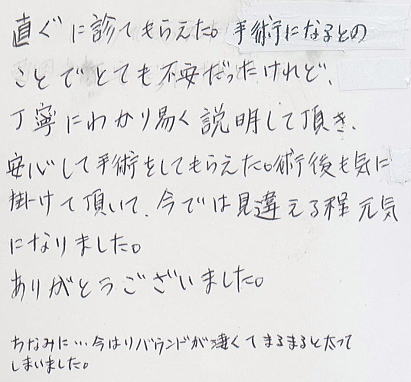 直ぐに診てもらえた。手術になるとの
ことでとても不安だったけれど、
丁寧にわかり易く説明して頂き、
安心して手術をしてもらえた。術後も気に
掛けて頂いて、今では見違える程元気
になりました。
ありがとうございました。
ちなみに…今はリバウンドが凄くてまるまると太って
しまいました。